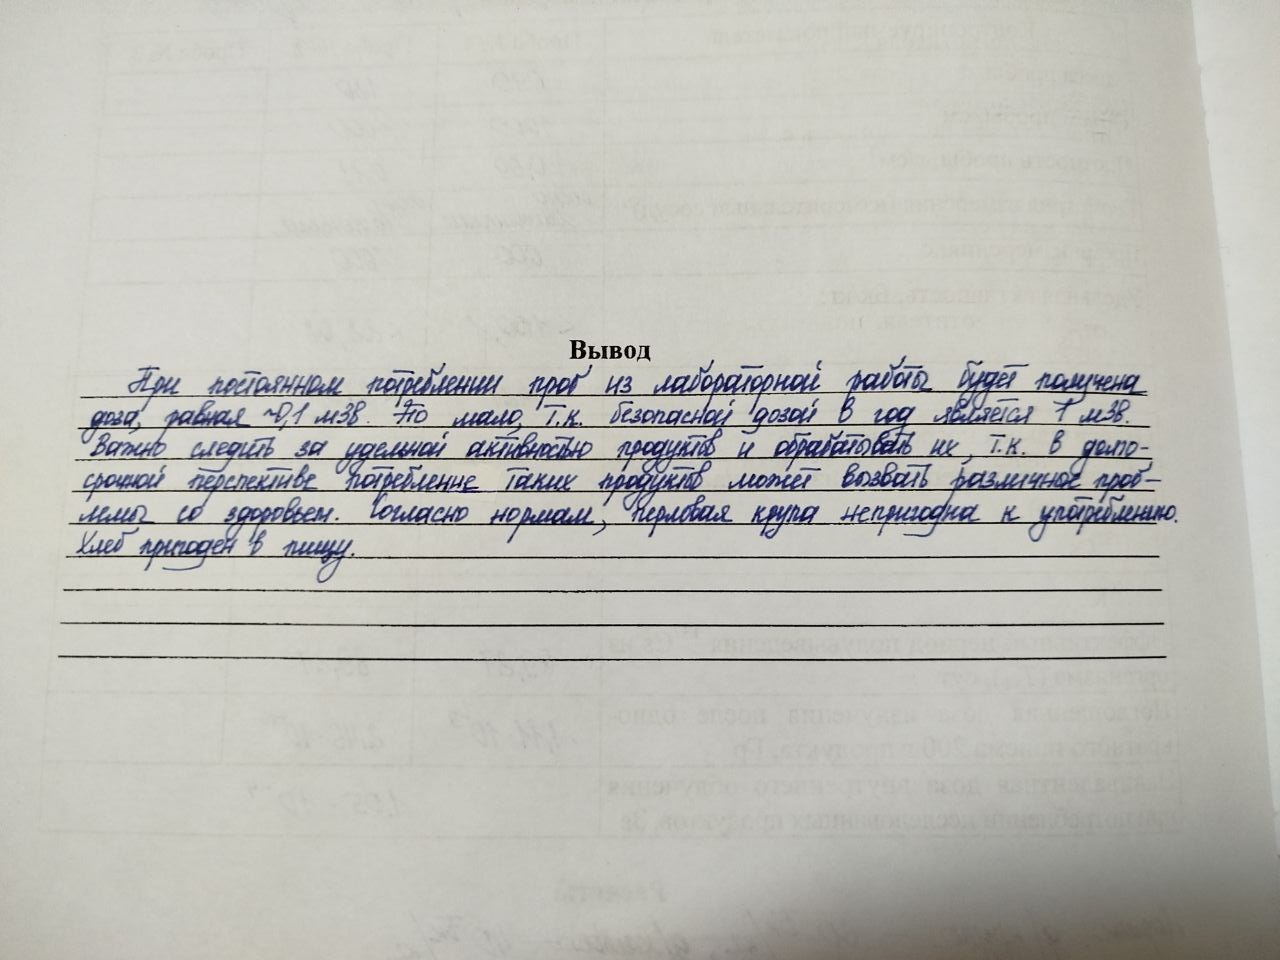 Вывод
При постоянном потреблении проб из лабораторной работы будет получена
доза, равная ~0,1 мЗв. Это мало, т.к. безопасной дозой в год является 1 мЗв.
Важно следить за удельной активностью продуктов и обрабатывать их, т.к. в долго-
срочной перспективе потребление таких продуктов может вызвать различное проб-
лемы со здоровьем. Согласно нормам, перловая крупа непригодна к употреблению.
Хлеб пригоден в пищу.